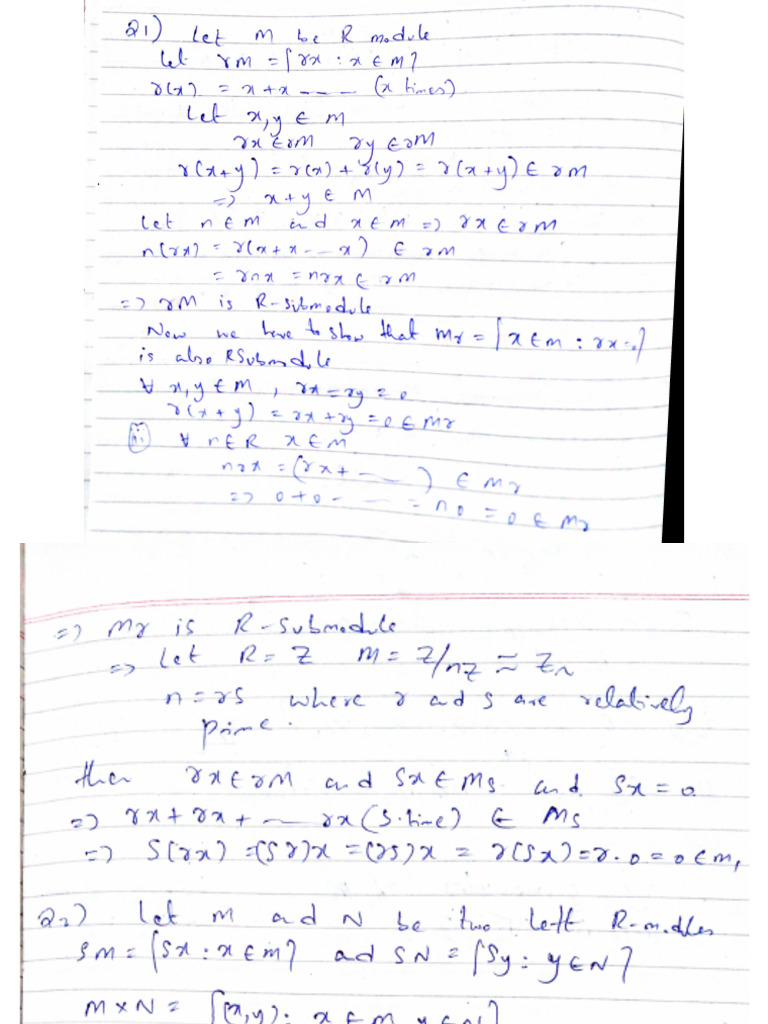 Q1) Let M be R module
Let rM = {rx : x ∈ M}
r(x) = x+x ---- (x times)
Let x,y ∈ M
rx ∈ rM ry ∈ rM
r(x+y) = r(x) + r(y) = r(x+y) ∈ rM
=> x+y ∈ M
Let n ∈ M and x ∈ M => rx ∈ rM
n(rx) = r(x+x---x) ∈ rM
= rnx = nrx ∈ rM
=> rM is R-submodule
Now we have to show that Mr = {x ∈ M : rx=0}
is also RSubmodule
∀ x,y ∈ M, rx = ry = 0
r(x+y) = rx+ry = 0 ∈ Mr
ii) ∀ n ∈ R x ∈ M
nrx = (rx+ ----) ∈ Mr
=> 0+0 - --- = n0 = 0 ∈ Mr
=> Mr is R-submodule
=> Let R = Z M = Z/nZ ≈ Zn
n = rs where r and s are relatively
prime.
then rx ∈ rM and Sx ∈ Ms and Sx = 0
=> rx+rx+ --- rx (S-time) ∈ Ms
=> S(rx) = (Sr)x = (rs)x = r(Sx) = r.0 = 0 ∈ M,
Q2) Let M and N be two left R-modles
SM = {Sx : x ∈ M} ad SN = {Sy : y ∈ N}
M×N = {(x,y) : x ∈ M, y ∈ N}